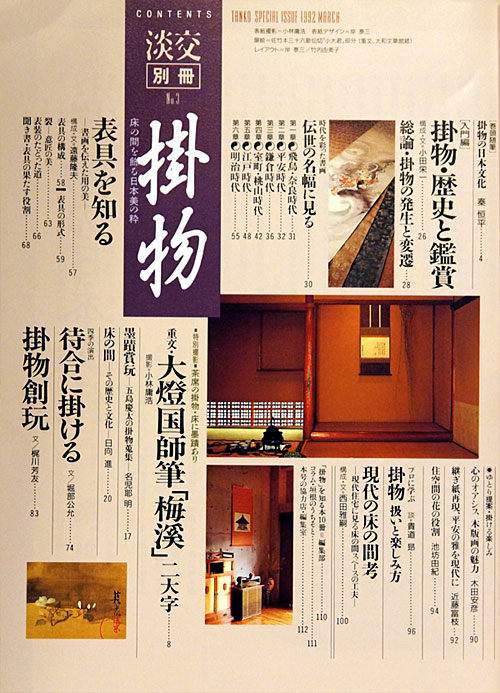 CONTENTS
TANKO SPECIAL ISSUE 1992 MARCH
表紙撮影=小林庸浩　表紙デザイン=岸 泰三
扉絵=佐竹本三十六歌仙切「小大君」部分(重文、大和文華館蔵)
レイアウト=岸 泰三/竹内由美子
淡交
別冊
No.3
掛物
床の間を飾る日本美の粋
巻頭随筆
掛物の日本文化 秦 恒平 4
[入門編]
掛物・歴史と鑑賞
構成・文・小田栄一 26
総論・掛物の発生と変遷 28
時代を彩った書・画
伝世の名幅に見る 30
第一章 飛鳥・奈良時代 31
第二章 平安時代 32
第三章 鎌倉時代 36
第四章 室町・桃山時代 42
第五章 江戸時代 48
第六章 明治時代 55
表具を知る
—書画を伝えた用の美
構成・文・遠藤隆夫 57
表具の構成 58 表具の形式 59
裂・意匠の美 63
表装のたどった道 66
聞き書・表具の果たす役割 68
●特別撮影●茶席の掛物・床に墨蹟あり
重文・大燈国師筆「梅溪」二大字 8
撮影・小林庸浩
墨蹟賞玩—五島慶太の掛物蒐集—名児耶 明 17
床の間—その歴史と文化—日向 進 20
四季の演出
待合に掛ける 文・堀部公允 74
掛物創玩 文・梶川芳友 83
●ゆとり提案・掛ける楽しみ
心のオアシス、木版画の魅力 木田安彦 90
継ぎ紙再現、平安の雅を現代に 近藤富枝 92
住空間の花の役割 池坊由紀 94
プロに学ぶ 談・貴道 昂
掛物 扱いと楽しみ方 96
現代の床の間考
—現代住宅に見る床の間スペースの工夫—
構成・文・西田雅嗣 100
「掛物」を知る本10冊=編集部 110
コラム・垣根のうちそと 111
本号の協力店・編集室 112